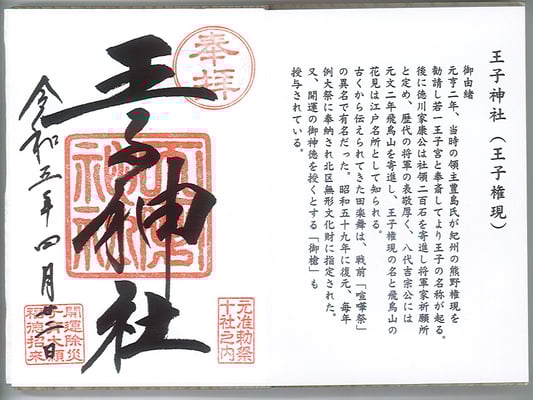 王子神社(王子権現)
御由緒
元亨二年、当時の領主豊島氏が紀州の熊野権現を
勧請し若一王子宮と奉斎してより王子の名称が起る。
後に徳川家康公は社領二百石を寄進し将軍家祈願所
と定め、歴代の将軍の表敬厚く、八代吉宗公には
元文二年飛鳥山を寄進し、王子権現の名と飛鳥山の
花見は江戸名所として知られる。
古くから伝えられてきた田楽舞は、戦前「喧嘩祭」
の異名で有名だった。昭和五十九年に復元、毎年
例大祭に奉納され北区無形文化財に指定された。
又、開運の御神徳を授くとする「御槍」も
授与されている。
奉拝
王子神社
元准勅祭
十社之内
令和五年四月廿二日
開運除災